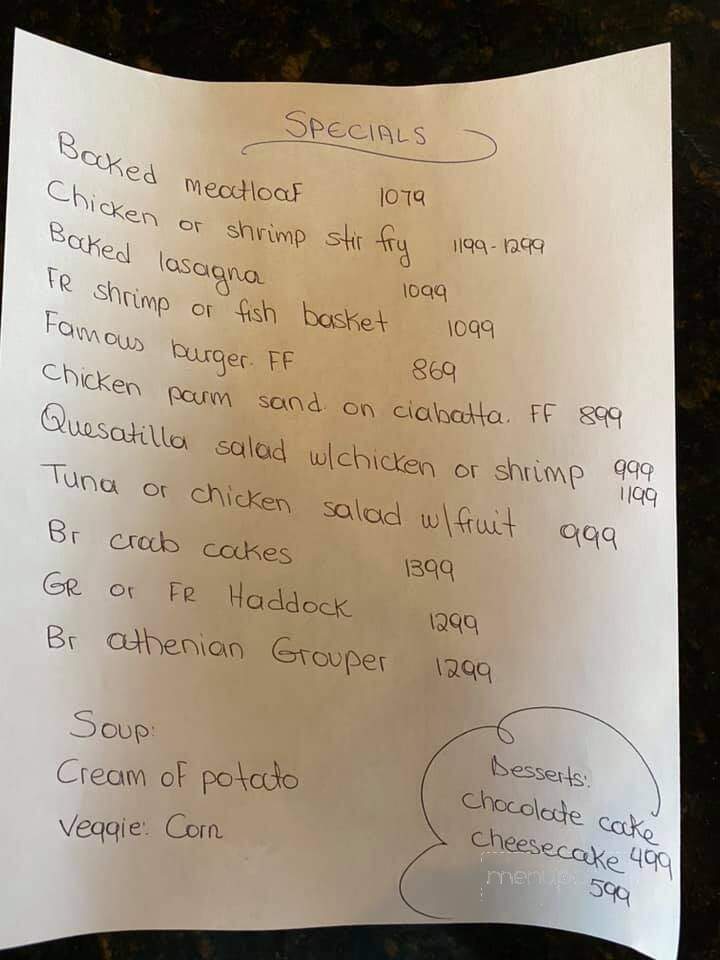 SPECIALS
Baked meatloaf 1079
Chicken or shrimp stir fry 1199-1299
Baked lasagna 1099
FR shrimp or fish basket 1099
Famous burger. FF 869
Chicken parm sand. on ciabatta. FF 899
Quesatilla salad w/chicken or shrimp 999
1199
Tuna or chicken salad w/fruit 999
Br crab cakes 1399
GR or FR Haddock 1299
Br athenian Grouper 1299
Soup:
Cream of potato
Veggie: Corn
Desserts:
chocolate cake
cheesecake 499
599